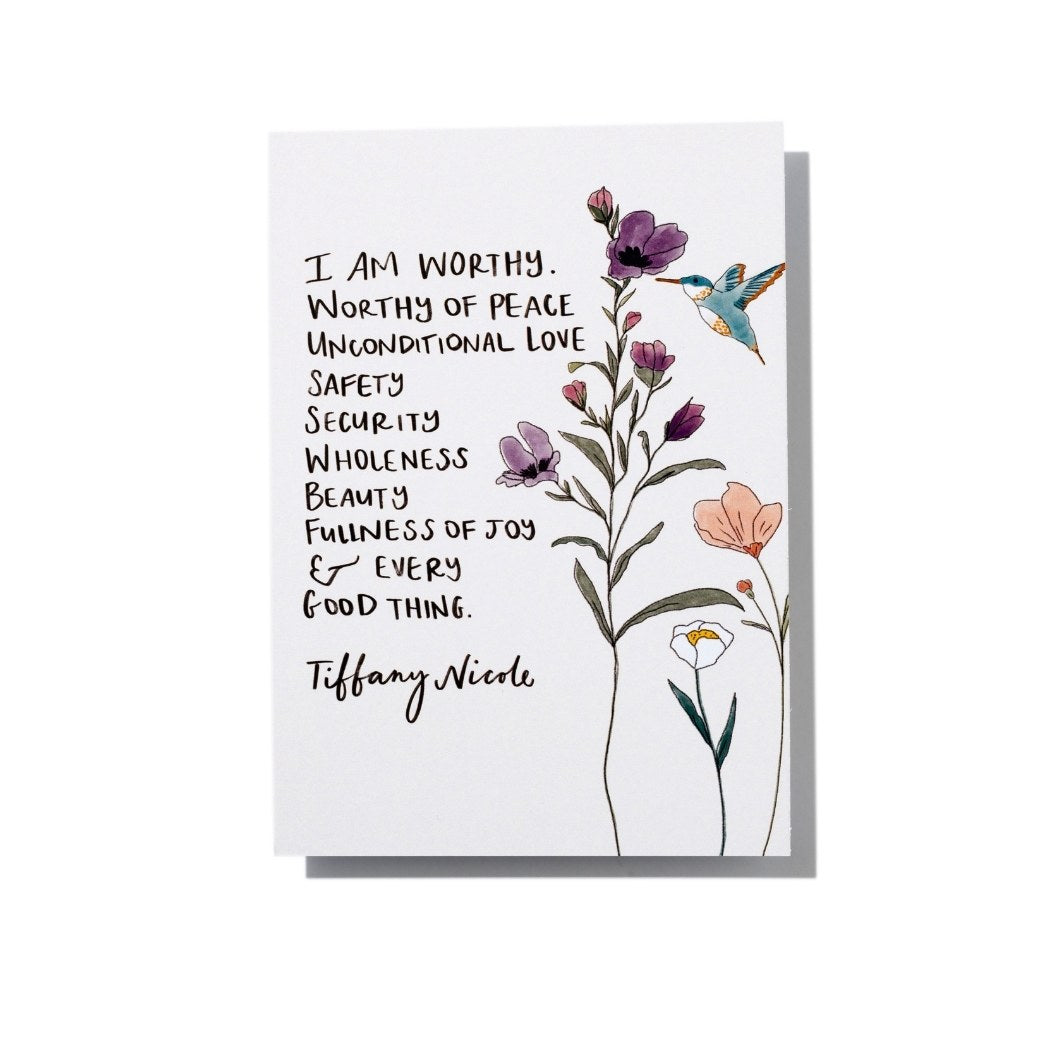 I AM WORTHY.
WORTHY OF PEACE
UNCONDITIONAL LOVE
SAFETY
SECURITY
WHOLENESS
BEAUTY
FULLNESS OF JOY
& EVERY
GOOD THING.
Tiffany Nicole